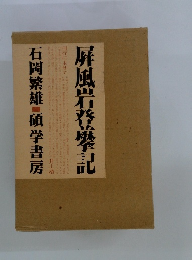 屏風岩登攀記
石岡繁雄 碩学書房